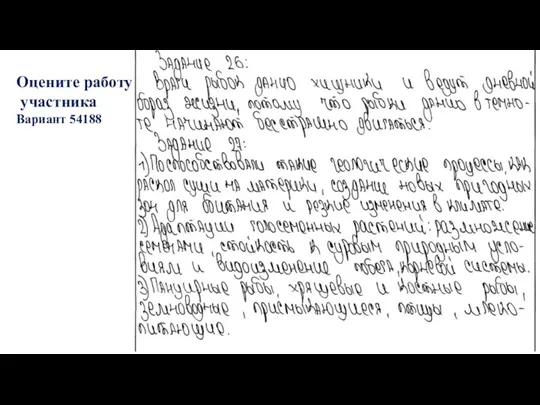 Оцените работу
участника
Вариант 54188
Задание 26:
Враги рыбок данио хищники и ведут дневной
образ жизни, потому что рыбки данио в темно-
те начинают бесстрашно двигаться.
Задание 27:
1) Поспособствовали такие геологические процессы, как
раскол суши на материки, создание новых пригодных
зон для обитания и резкие изменения в климате.
2) Адаптации голосеменных растений: размножение
семенами, стойкость к суровым природным усло-
виям и видоизменение побега, корневой системы.
3) Панцирные рыбы, хрящевые и костные рыбы,
земноводные, присмыкающиеся, птицы, млеко-
питающие.